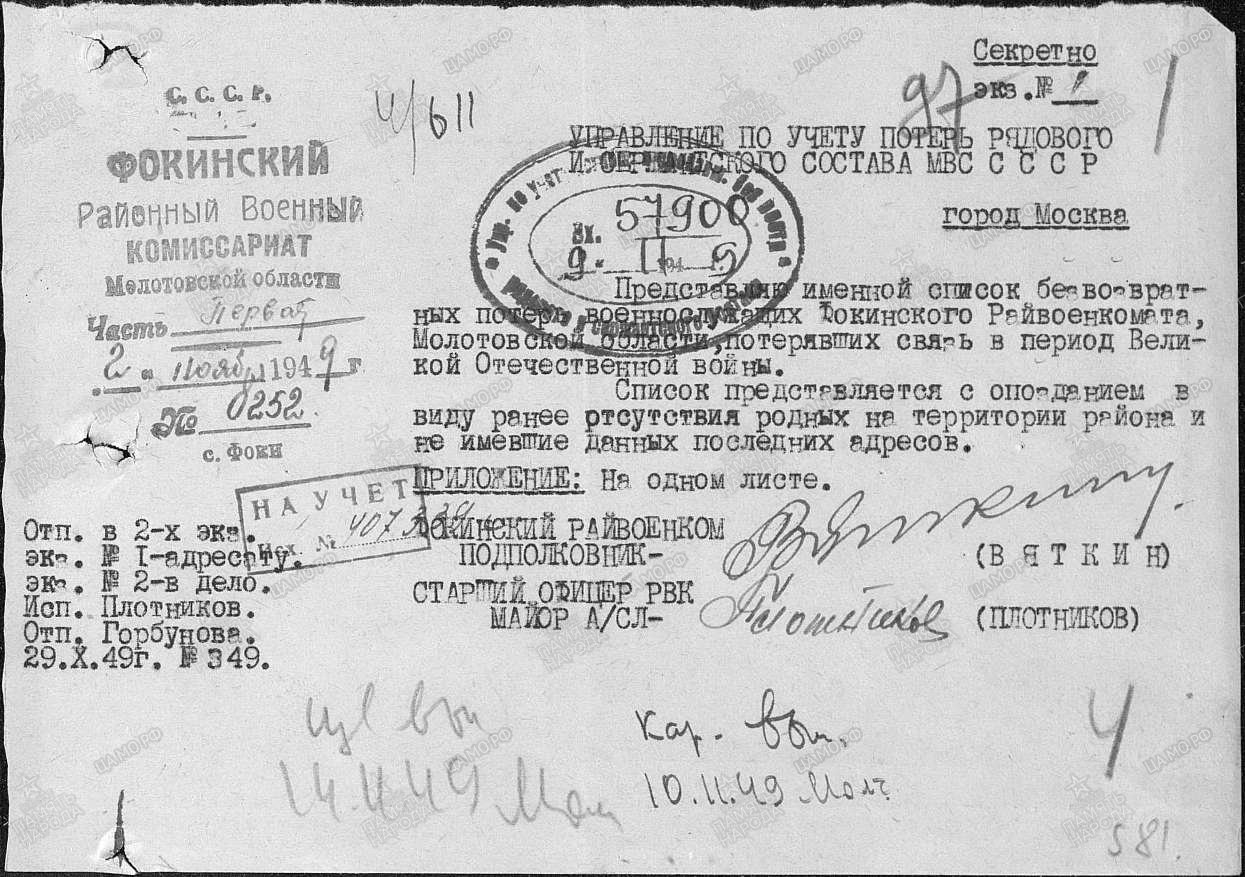 Секретно
экз.№ 1
97
4/611
С. С. С. Р.
ФОКИНСКИЙ
Районный Военный
КОМИССАРИАТ
Молотовской области
Часть Первая
"2" ноября 1949 г
№ 0252.
с. Фоки
УПРАВЛЕНИЕ ПО УЧЕТУ ПОТЕРЬ РЯДОВОГО
И СЕРЖАНТСКОГО СОСТАВА МВС С С С Р
город Москва
Вх. 57900
9 " 11 194 9
Представляю именной список безвозврат-
ных потерь военнослужащих Фокинского Райвоенкомата,
Молотовской области,потерявших связь в период Вели-
кой Отечественной войны.
Список представляется с опозданием в
виду ранее отсутствия родных на территории района и
не имевшие данных последних адресов.
ПРИЛОЖЕНИЕ: На одном листе.
НА УЧЕТ
Исх. №
ФОКИНСКИЙ РАЙВОЕНКОМ
ПОДПОЛКОВНИК-
(В Я Т К И Н)
СТАРШИЙ ОФИЦЕР РВК
МАЙОР А/СЛ-
Плотников
(ПЛОТНИКОВ)
Отп. в 2-х экз.
экз. № I-адресату.
экз. № 2-в дело.
Исп. Плотников.
Отп. Горбунова.
29.X.49г. № 349.
14.11.49
Кар.
10.11.49
4
581.
ЦАМО.РФ
ПАМЯТЬ
НАРОДА